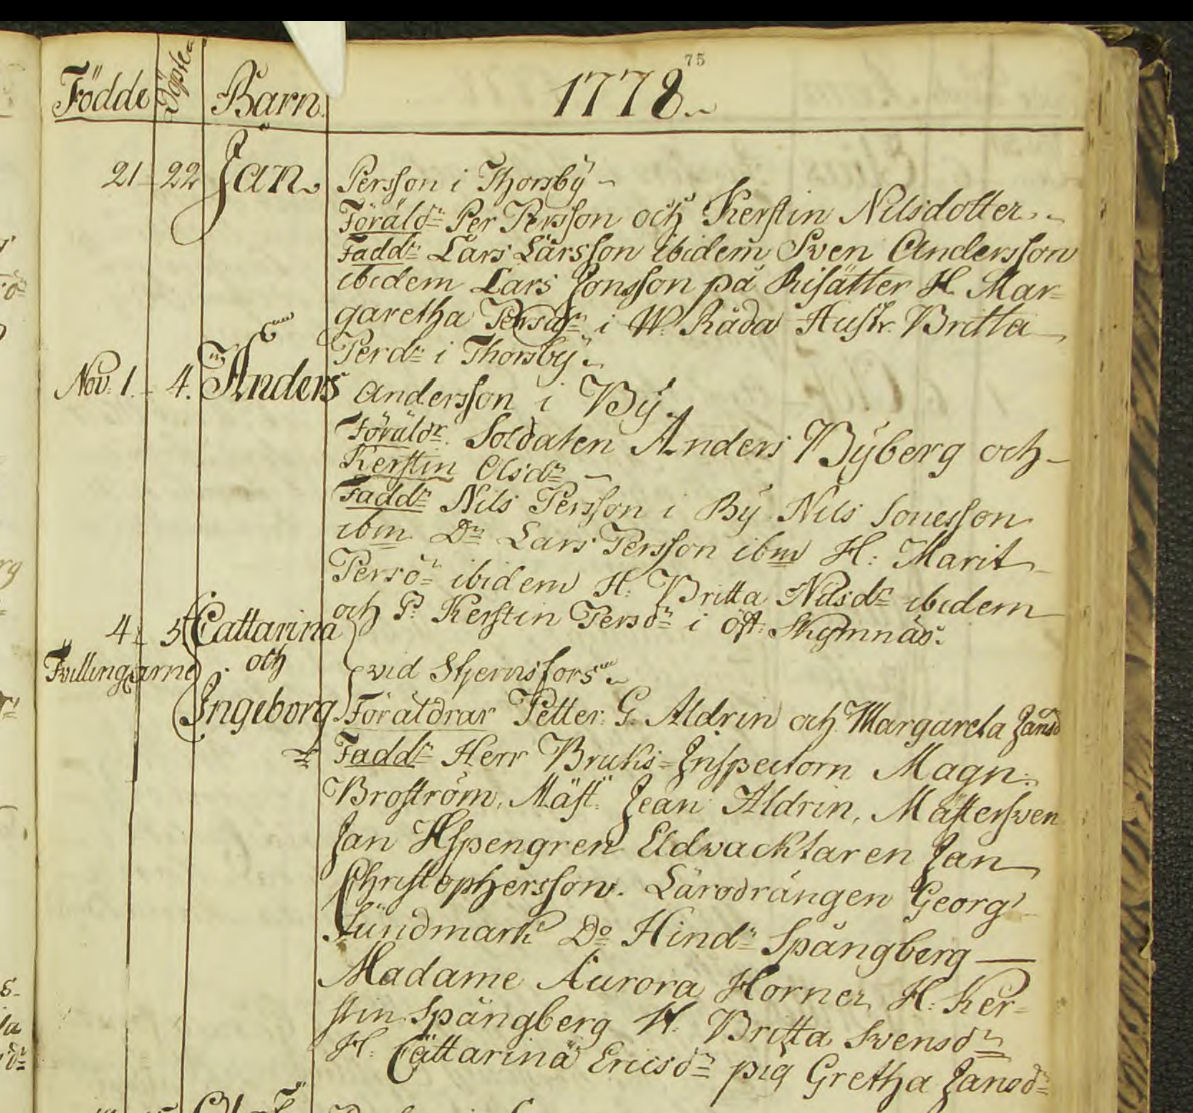 75
Födde Döpte Barn 1778
21 22 Jan Persson i Thorsby
Föräldr Per Persson och Kerstin Nilsdotter
Faddr Lars Larsson ibidem Sven Andersson
ibidem Lars Jonsson på Risätter H. Mar=
garetha Persdr i W. Råda Hustr. Britta
Perdr i Thorsby
Nov. 1. 4. Anders Andersson i By
Föräldr. Soldaten Anders Byberg och
Kerstin Olsdr
Faddr Nils Persson i By Nils Jonesson
ibm Dr Lars Persson ibm H: Marit
Persdr ibidem H. Britta Nilsdr ibidem
och P. Kerstin Persdr i öst: Skymnäs.
4. 5 Cattarina
Tvillingarne och vid Stjernsfors
Ingeborg Föräldrar Petter G. Aldrin och Margareta Jansd
Faddr Herr Bruks=Inspectorn Magn.
Broström, Mäst. Jean Aldrin, Mästersven
Jan Espengren Eldvacktaren Jan
Christophersson. Lärodrängen Georg
Sundmark Do Hindr Spångberg
Madame Aurora Horner H. Ker=
stin Spångberg H. Britta Svensdr
H. Cattarina Ericsdr pig Gretha Jansdr